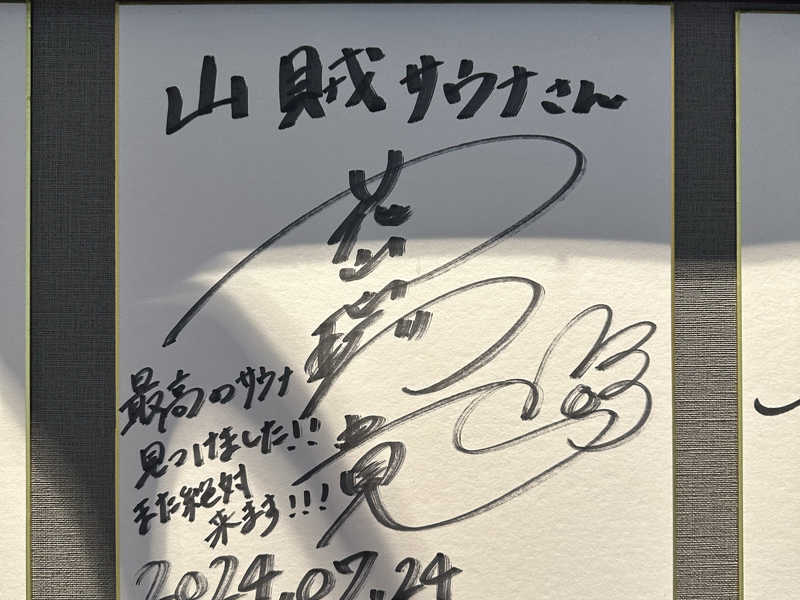 山賊サウナさん
花山瑞貴
最高のサウナ
見つけました!!
また絶対
来ます!!!
2024.07.24